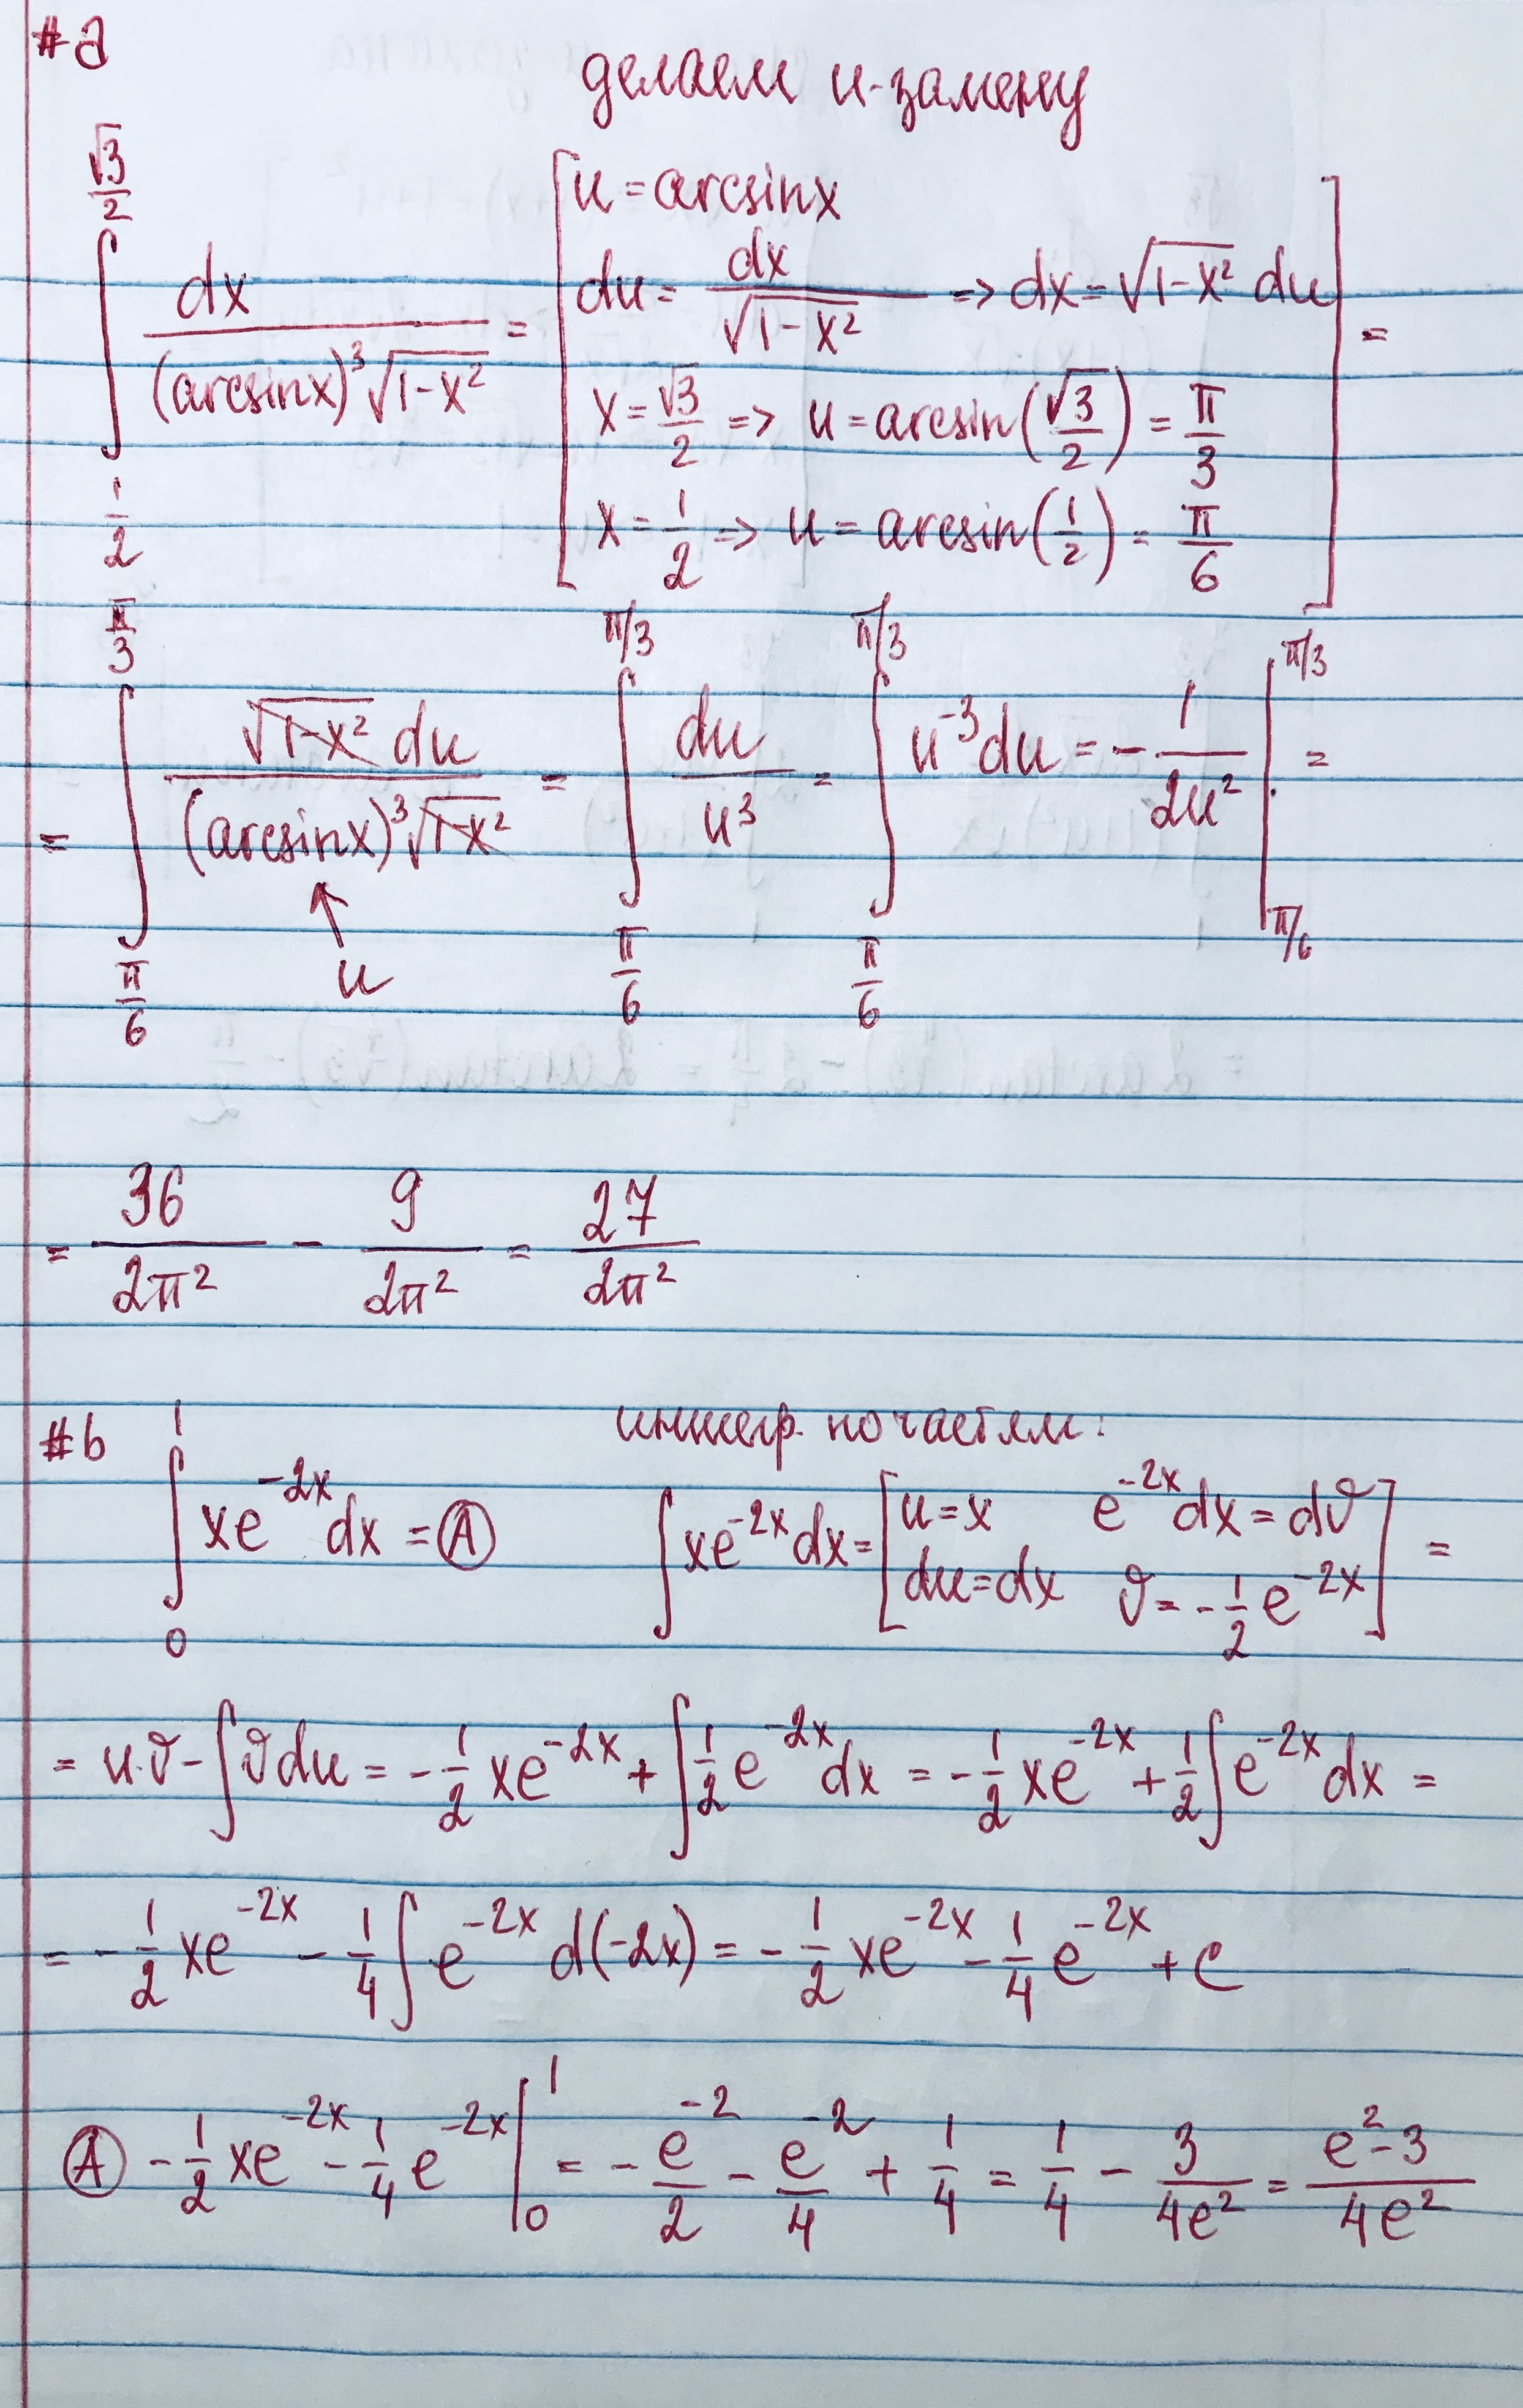 #a
делаем u-замену
∫_{1/2}^{√3/2} dx/((arcsinx)³√(1-x²)) = [u = arcsinx
du = dx/√(1-x²) => dx = √(1-x²) du
x = √3/2 => u = arcsin(√3/2) = π/3
x = 1/2 => u = arcsin(1/2) = π/6] =
= ∫_{π/6}^{π/3} √(1-x²) du/((arcsinx)³√(1-x²)) = ∫_{π/6}^{π/3} du/u³ = ∫_{π/6}^{π/3} u⁻³du = -1/(2u²) |_{π/6}^{π/3} =
↑
u
= 36/(2π²) - 9/(2π²) = 27/(2π²)
#b
интегр. по частям:
∫_{0}^{1} xe^{-2x}dx = Ⓐ ∫xe^{-2x}dx = [u=x e^{-2x}dx = dv
du=dx v = -1/2 e^{-2x}] =
= u·v - ∫vdu = -1/2 xe^{-2x} + ∫1/2 e^{-2x}dx = -1/2 xe^{-2x} + 1/2 ∫e^{-2x}dx =
= -1/2 xe^{-2x} - 1/4 ∫e^{-2x} d(-2x) = -1/2 xe^{-2x} - 1/4 e^{-2x} + C
Ⓐ -1/2 xe^{-2x} - 1/4 e^{-2x} |_{0}^{1} = -e^{-2}/2 - e^{-2}/4 + 1/4 = 1/4 - 3/(4e²) = (e²-3)/(4e²)